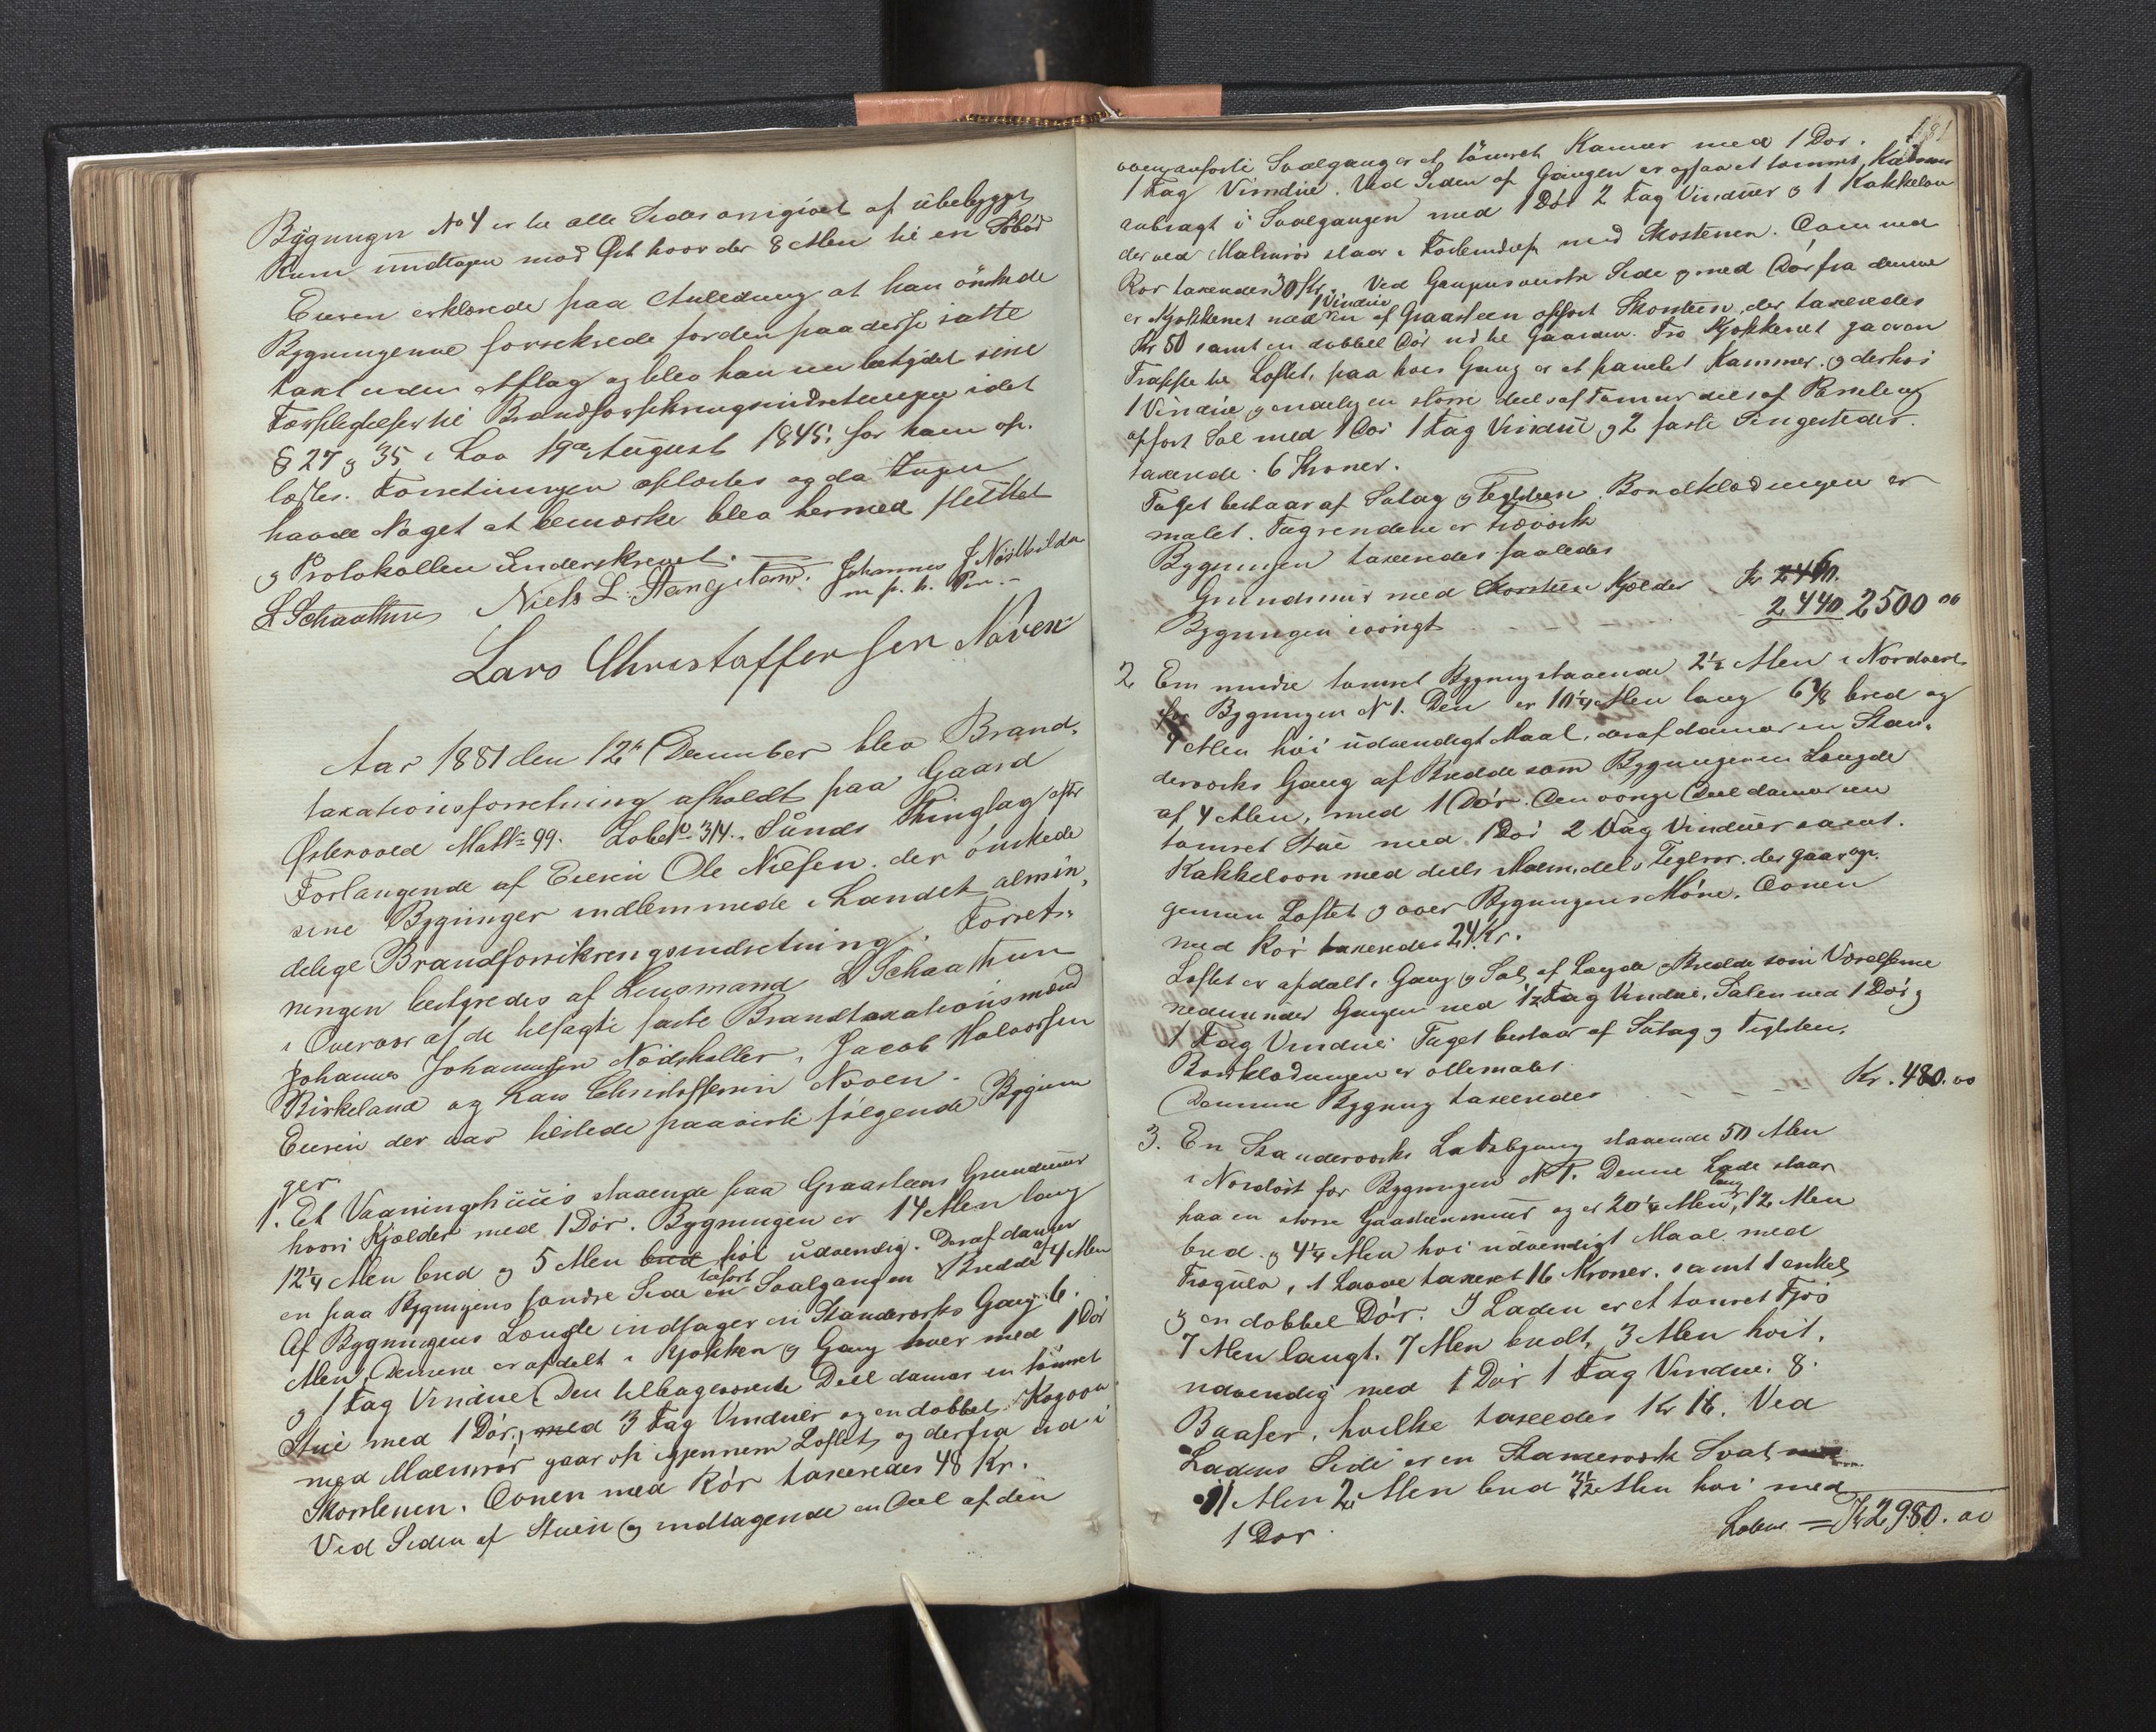 Bygninger No 4 er til alle Sider omgivet af ubebygget
Rum undtagen mod Øst hvor der 8 Alen til en Söbod
Eieren erklærede paa Anledning at han önskede
Bygningerne forsikrede for den paa disse satte
taxt uden Afslag og blev han nu betydet sine
Forpligtelser til Brandforsikringsindretningen idet
§ 27 g 35 i Lov 19de August 1845 for ham op-
læstes. Forretningen oplæstes og da Ingen
havde Noget at bemærke blev hermed sluttet
og Protokollen underskrevet.
L Schaathun Niels L. Stangeland. Johannes J Nödskilda
m. p. h. Pen.
Lars Christaffersen Naven
Aar 1881 den 12te December blev Brand-
taxationsforretning afholdt paa Gaard
Østervold Matr. 99. Löbe No 314. Sunds Thinglag efter
Forlangende af Eieren Ole Nielsen. der önskede
sine Bygninger indlemmede i Landets almin-
delige Brandforsikringsindretning. Forret-
ningen bestyredes af Lensmand L Schaathun
i Overvær af de tilsagte faste Brandtaxationsmænd
Johannes Johannesen Nödskaller, Jacob Halvorsen
Birkeland og Lars Christoffersen Naven.
Eieren der var tilstede paaviste fölgende Bygnin
ger.
1. Et Vaaningshuus staaende paa Graasteens Grundmuur
hvori Kjælder med 1 Dör. Bygningen er 14 Alen lang
12 1/4 Alen bred og 5 Alen bred höi udvendig. Deraf danner
en paa Bygningens söndre Side tilfört en Svalgangen Bredde af 4 Alen
Af Bygningens Længde indtager en Standværks Gang 6.
Alen, Denne er afdelt i Kjökken og Gang hver med 1 Dör
g 1 Fag Vindue. Den tilbageværende Deel danner en tömret
Stue med 1 Dör, med 3 Fag Vinduer og en dobbel Kogovn
med Malmrör gaar op igjennem Loftet og derfra ud i
Skorstenen. Ovnen med Rör taxeredes 48 Kr.
Ved Siden af Stuen og indtagende en Deel af den
181
ovenanförte Svalgang er et tömret Kammer med 1 Dör.
1 Fag Vindue. Ved Siden af Gangen er ogsaa et tömret Kammer
anbragt i Svalgangen med 1 Dör 2 Fag Vinduer g 1 Kakkelovn
der ved Malmrör staar i Forbindelse med Skorstenen. Ovnen med
Rör taxeredes 30 Kr. Ved Gangens venstre Side g med Dör fra denne
er Kjökkenet med 1 Vindue en af Graasteen opfört Skorsteen, der taxeredes
Kr 50 samt en dobbel Dör ud til Gaarden. Fra Kjökkenet gaar en
Trappe til Loftet, paa hvis Gang er et panelet Kammer. g derhos
1 Vindue g endelig en större deels af Tömmer deels af Paneling
opfört Sal med 1 Dör 1 Fag Vindue, g 2 faste Sengesteder.
taxerede. 6 Kroner.
Taget bestaar af Sutag g Teglsteen. Bordklædningen er
malet. Tagrenderne er Træværk
Bygningen taxeredes saaledes
Grundmuur med Skorsteen Kjælder Kr 60.
Bygningen iövrigt 2440 2500 00
2 En mindre tömret Bygning staaende 2 1/2 Alen i Nordvest
for Bygningen No 1. Den er 10 1/4 Alen lang 6 7/8 bred og
4 Alen höi udvendigt Maal, deraf danner en Stan-
derværks Gang af Bredde som Bygningen en Længde
af 4 Alen, med 1 Dör. Den övrige Deel danner en
tömret Stue med 1 Dör 2 Fag Vinduer samt.
Kakkelovn med deels Malm, deels Teglrör. der gaar igj-
gennem Loftet g over Bygningens Möne. Ovnen
med Rör taxeredes 24 Kr.
Loftet er afdelt i Gang g Sal, af Længde g Bredde som Værelserne
nedenunder Gangen med 1/2 Fag Vindue, Salen med 1 Dör g
1 Fag Vindue Taget bestaar af Sutag g Teglsten.
Bordklædningen er ollemalet
Denne Bygning taxeredes Kr. 480. 00
3. En Standerværks Ladebygning staaende 50 Alen
i Nordöst for Bygningen No 1. Denne Lade staar
paa en större Graasteensmuur og er 20 1/4 Alen lang, 12 Alen
bred. g 4 1/4 Alen höi udvendigt Maal med
Trægulv, 1 Laave taxeret 16 Kroner. samt 1 enkel
g en dobbel Dör. I Laden er et tömret Fjös
7 Alen langt. 7 Alen bredt, 3 Alen höit.
udvendig med 1 Dör 1 Fag Vindue. 8.
Baaser, hvilke taxeredes Kr 16. Ved
Ladens Side er en Standerværk Sval
11 Alen 2 Alen bred 3 1/2 Alen höi med
1 Dör. Latus = Kr 2980. 00